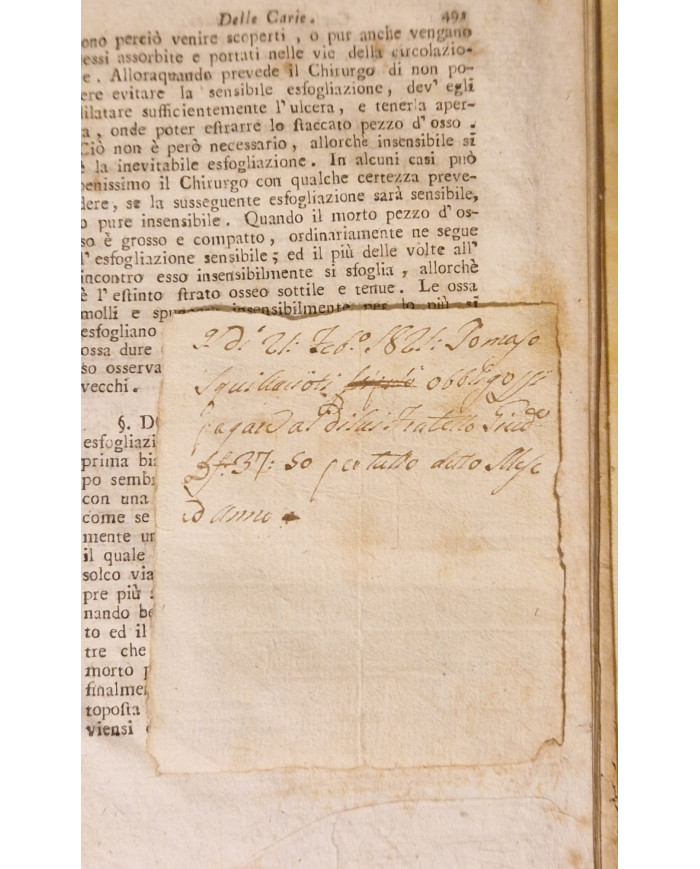 Delle Carie. 491
ono perciò venire scoperti, o pur anche vengano
essi assorbite e portati nelle vie della circolazio-
e. Alloraquando prevede il Chirurgo di non po-
ere evitare la sensibile esfogliazione, dev' egli
dilatare sufficientemente l'ulcera, e tenerla aper-
a, onde poter estrarre lo staccato pezzo d'osso.
Ciò non è però necessario, allorchè insensibile si
è la inevitabile esfogliazione. In alcuni casi può
benissimo il Chirurgo con qualche certezza preve-
dere, se la susseguente esfogliazione sarà sensibile,
o pure insensibile. Quando il morto pezzo d'os-
so è grosso e compatto, ordinariamente ne segue
l'esfogliazione sensibile; ed il più delle volte all'
incontro esso insensibilmente si sfoglia, allorchè
è l'estinto strato osseo sottile e tenue. Le ossa
molli e insensibilmente per lo più si
esfogliano
ossa dure
so osserva
vecchi.
§. D
esfogliazi
prima bi
po sembr
con una
come se
mente un
il quale
solco via
pre più
nando be
to ed il
tre che
morto p
finalme
toposta
viensi
Di 21: Feb.o 1821: Tomaso
obbligo
pagare al di lui Fratello
37: 50 per tutto detto Mese
ed anno